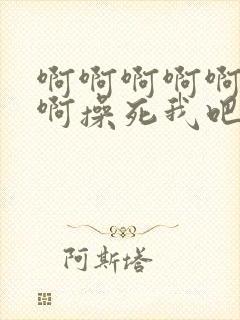 啊啊啊啊啊
啊操死我吧
阿斯塔